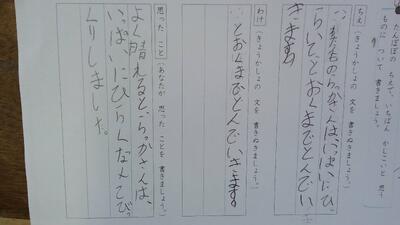 たんぽぽの ちえで、いちばん かしこいと 思う
ものに ついて 書きましょう。
ちえ(きょうかしょの 文を 書きぬきましょう。)
わた毛のらっかさんは、いっぱいにひ
らいて、とおくまでとんでい
きます。
わけ(きょうかしょの 文を 書きぬきましょう。)
とおくまでとんでいきます。
思った こと(あなたが 思った ことを 書きましょう。)
よく晴れると、らっかさんは、
いっぱいにひらくなんてびっ
くりしました。